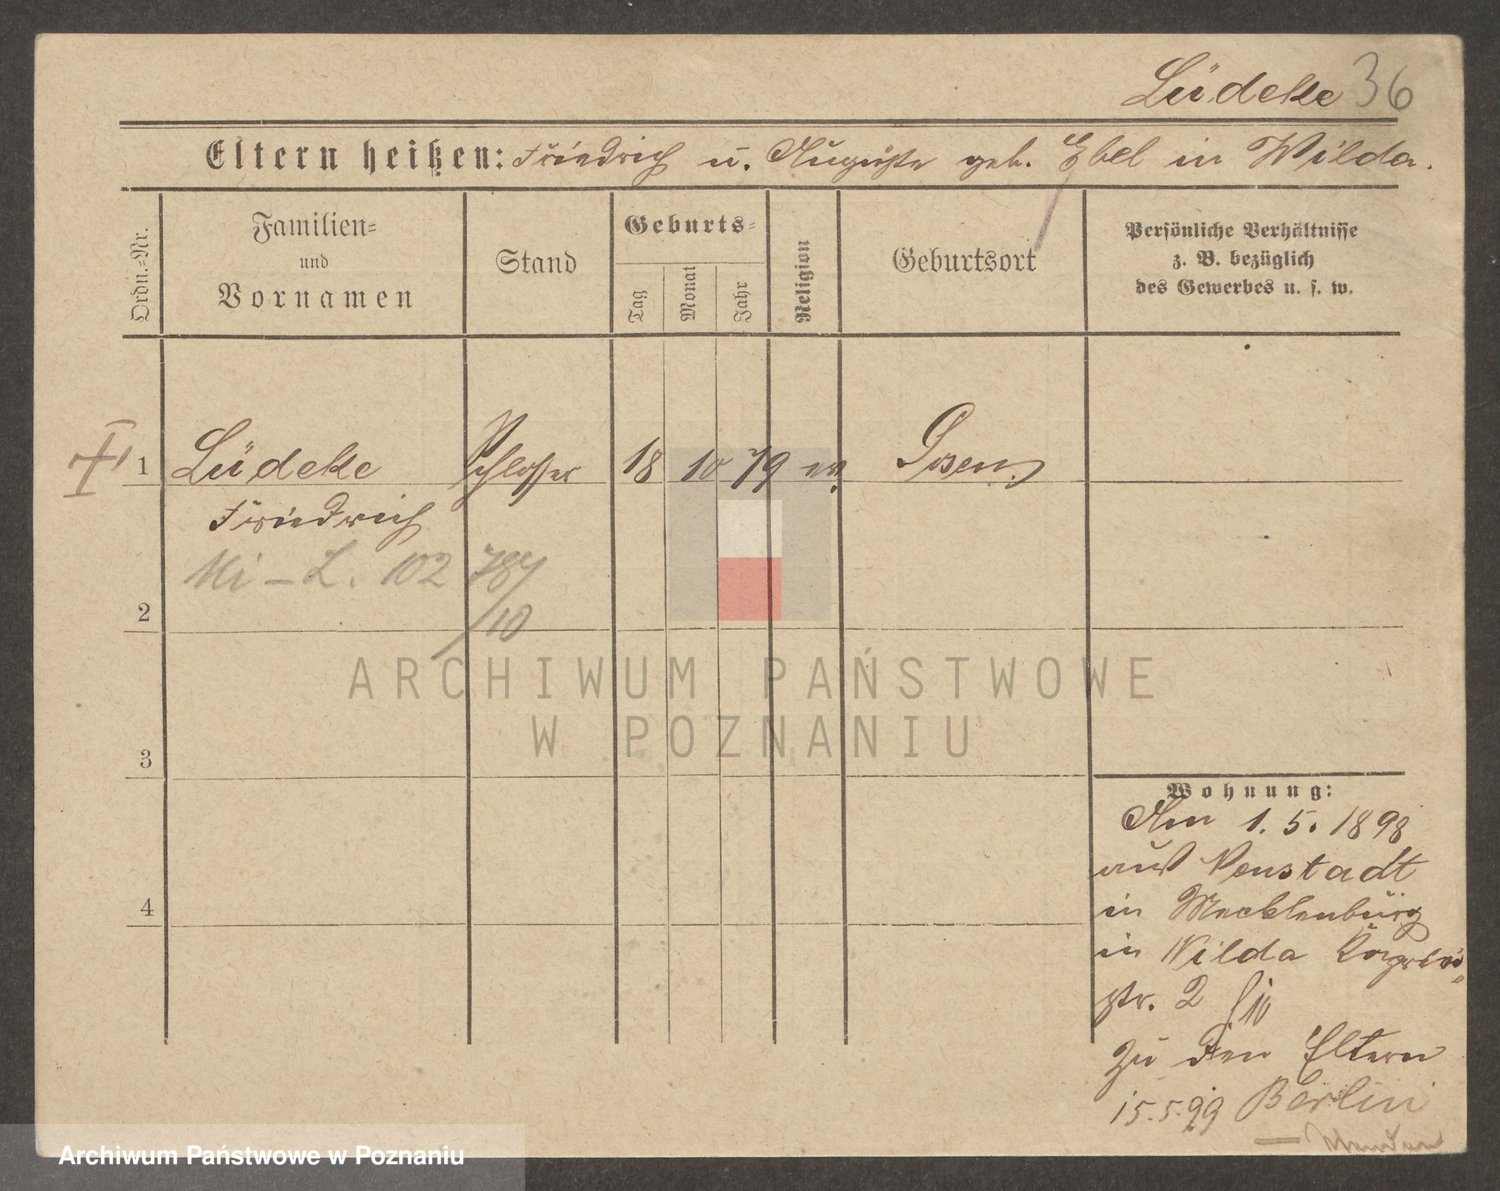 Lüdeke 36
Eltern heißen: Friedrich u. Auguste geb. Ebel in Wilda.
Ordn.=Nr.
Familien=
und
Vornamen
Stand
Geburts=
Tag
Monat
Jahr
Religion
Geburtsort
Persönliche Verhältnisse
z. B. bezüglich
des Gewerbes u. s. w.
1 Lüdeke Schlosser 18 10 79 ev. Posen.
Friedrich
Mi - L. 102 784
/10
2
3
4
Wohnung:
Am 1. 5. 1898
aus Neustadt
in Mecklenburg
in Wilda
str. 2
zu den Eltern
15.5.99 Berlin
ARCHIWUM PAŃSTWOWE
W POZNANIU
Archiwum Państwowe w Poznaniu